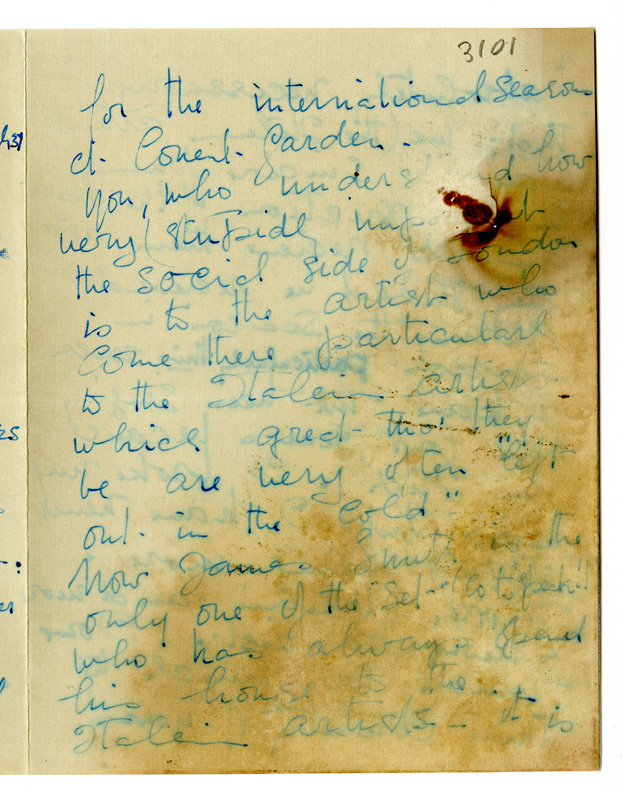 3101
for the international season
at Covent Garden.
You, who underst nd how
very (stupidly impo t
the social side of London
is to the artist who
come there particularl
to the Italein artists
which great tho' they
be are very often "left
out in the cold"
Now James Smith is the
only one of the "set" (so to speak!)
who has always opend
his house to the
Italein artists — it is